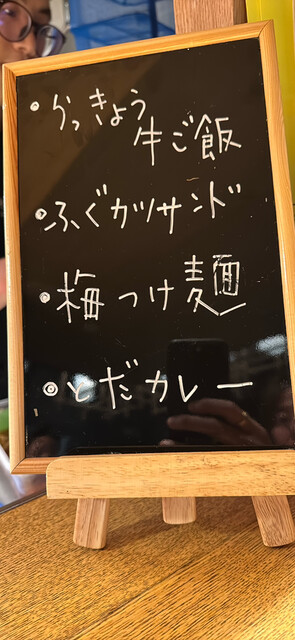 ・らっきょう
牛ご飯
・ふぐカツサンド
・梅つけ麺
・とだカレー